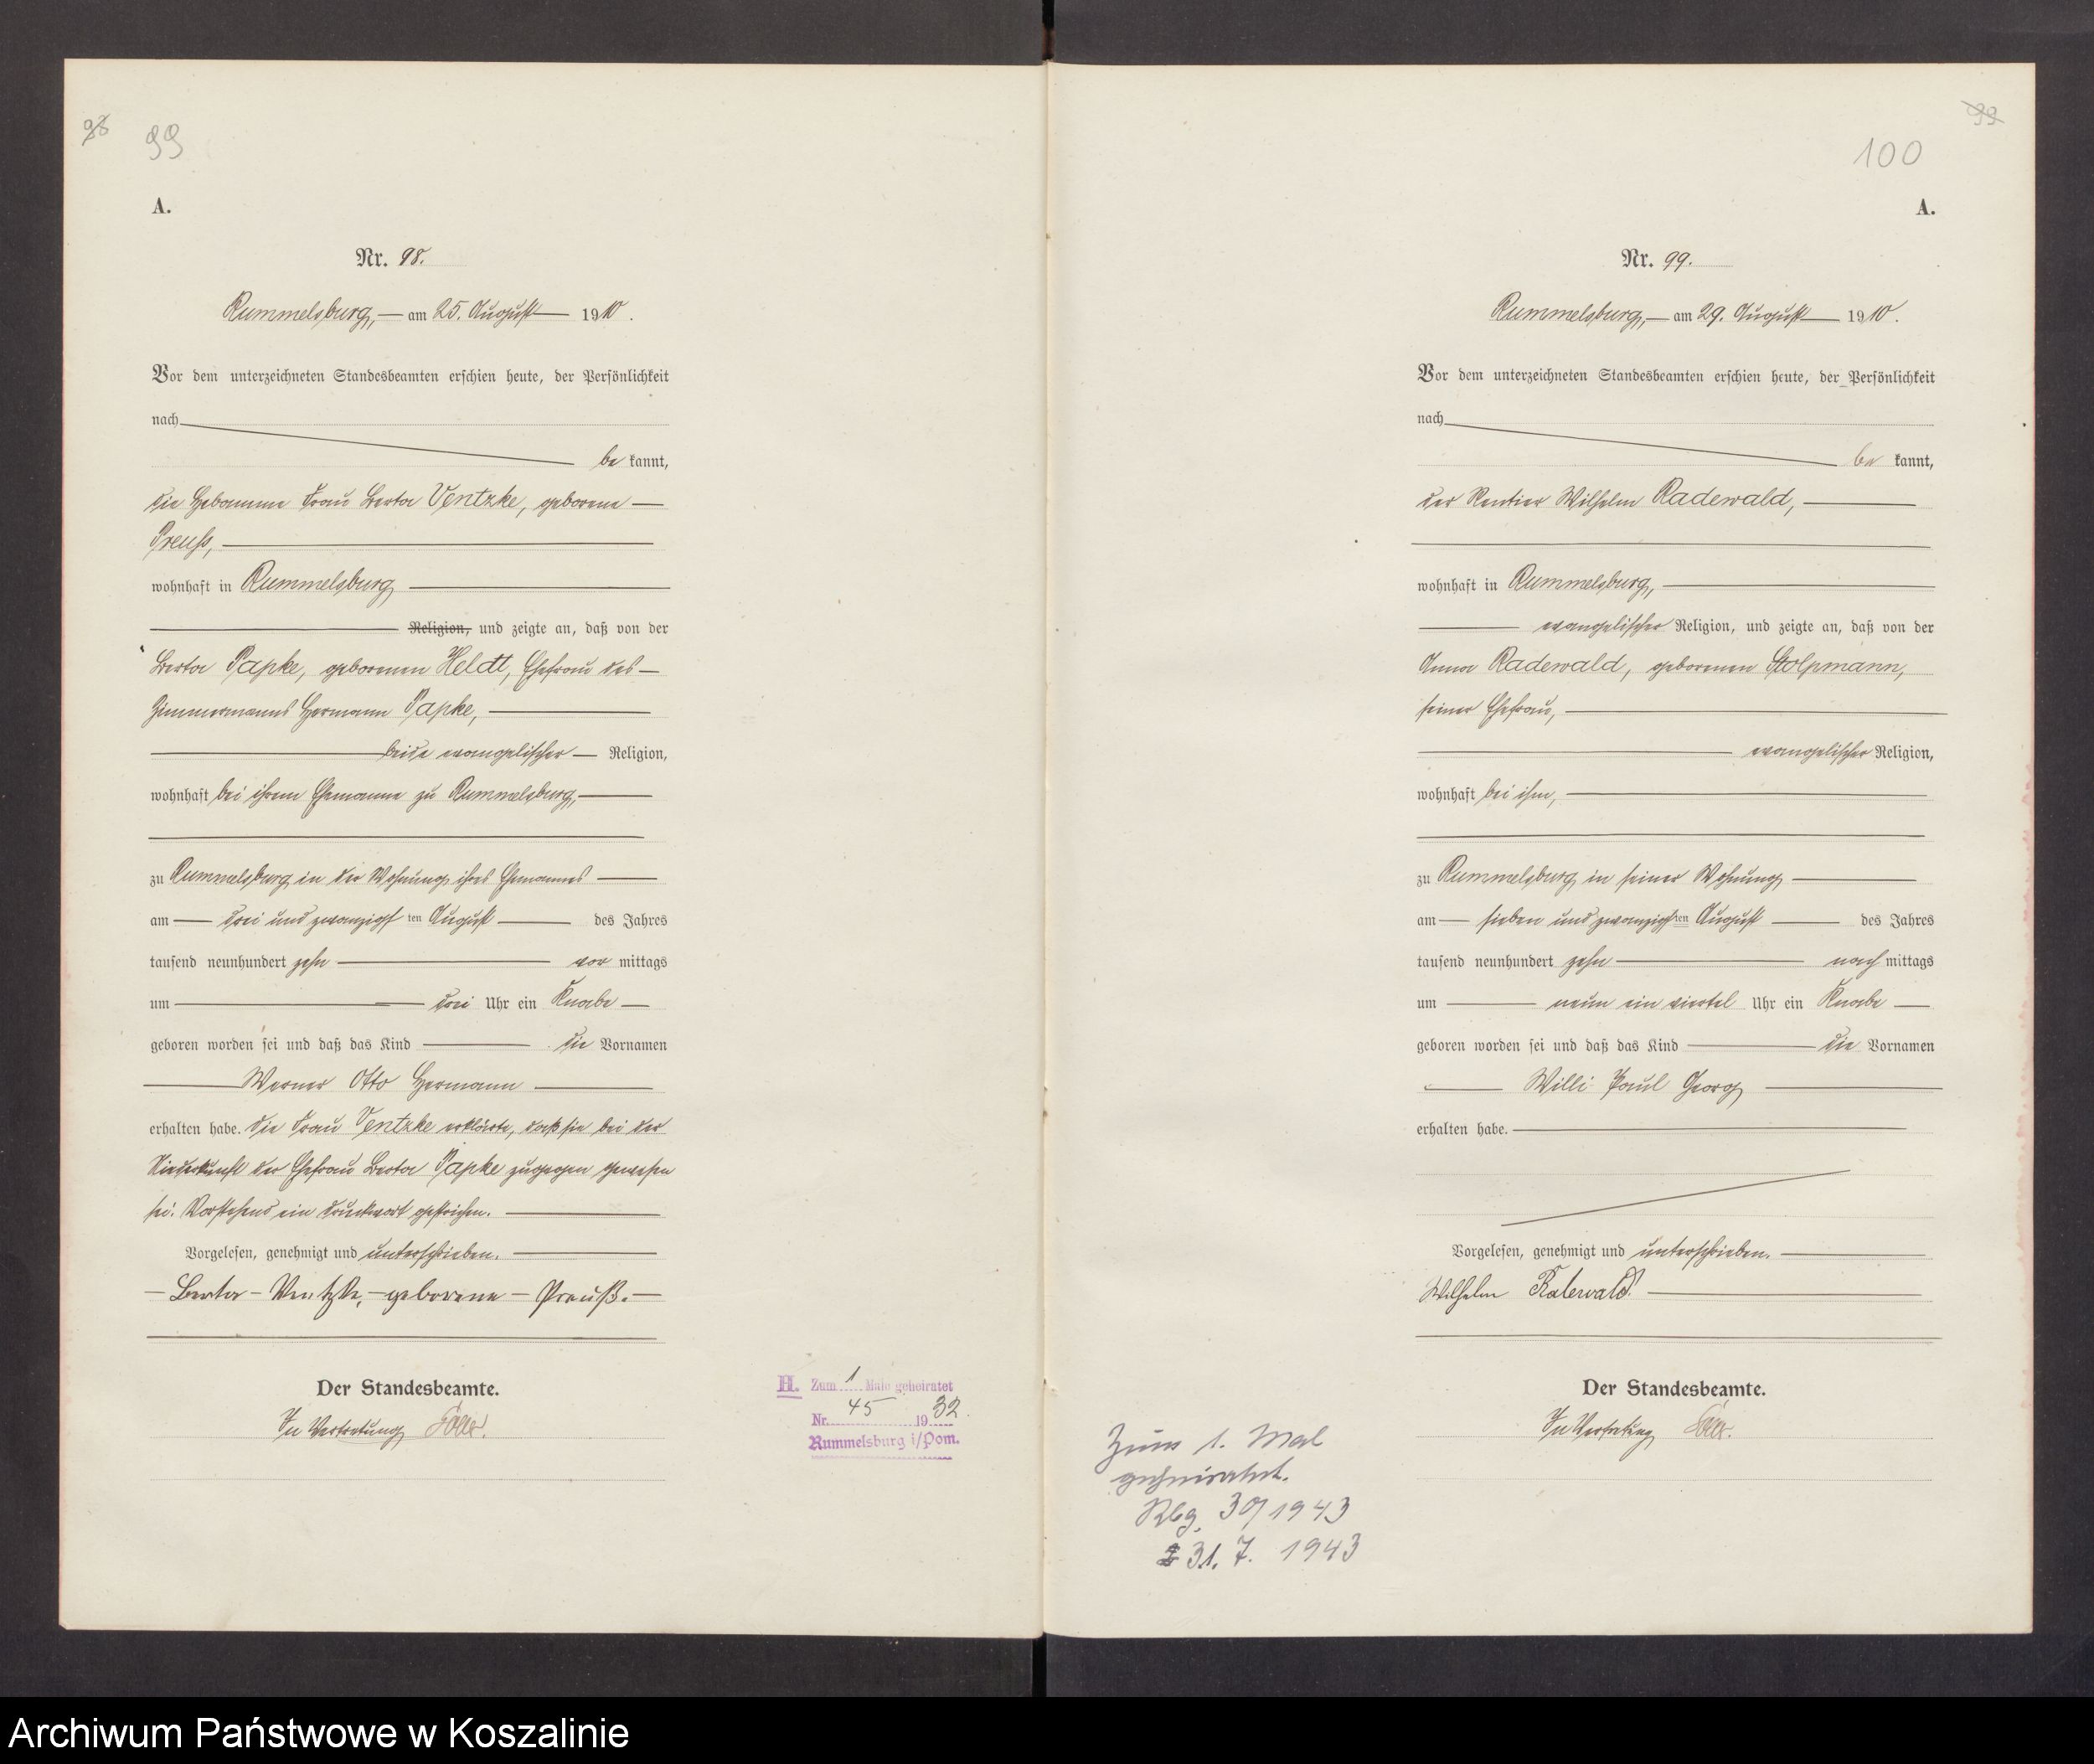 98
99
A.
Nr. 98.
Rummelsburg, am 25. August 1910.
Vor dem unterzeichneten Standesbeamten erschien heute, der Persönlichkeit
nach
be kannt,
die Hebamme Frau Berta Ventzke, geborene
Preuß,
wohnhaft in Rummelsburg
Religion, und zeigte an, daß von der
Berta Papke, geborenen Heldt, Ehefrau des
Zimmermanns Hermann Papke,
beide evangelischer Religion,
wohnhaft bei ihrem Ehemanne zu Rummelsburg,
zu Rummelsburg in der Wohnung ihres Ehemannes
am drei und zwanzigsten August des Jahres
tausend neunhundert zehn vor mittags
um drei Uhr ein Knabe
geboren worden sei und daß das Kind die Vornamen
Werner Otto Hermann
erhalten habe. Die Frau Ventzke erklärte, daß sie bei der
Niederkunft der Ehefrau Berta Papke zugegen gewesen
sei. Vorstehend ein Druckwort gestrichen.
Vorgelesen, genehmigt und unterschrieben.
Berta Ventzke, geborene Preuß.
Der Standesbeamte.
In Vertretung
H. Zum 1 Male geheiratet
Nr. 45 1932.
Rummelsburg i/Pom.
99
100
A.
Nr. 99.
Rummelsburg, am 29. August 1910.
Vor dem unterzeichneten Standesbeamten erschien heute, der Persönlichkeit
nach
be kannt,
der Rentier Wilhelm Radewald,
wohnhaft in Rummelsburg,
evangelischer Religion, und zeigte an, daß von der
Anna Radewald, geborenen Stolpmann,
seiner Ehefrau,
evangelischer Religion,
wohnhaft bei ihm,
zu Rummelsburg in seiner Wohnung
am sieben und zwanzigsten August des Jahres
tausend neunhundert zehn nach mittags
um neun ein viertel Uhr ein Knabe
geboren worden sei und daß das Kind die Vornamen
Willi Paul Georg
erhalten habe.
Vorgelesen, genehmigt und unterschrieben.
Wilhelm Radewald
Der Standesbeamte.
In Vertretung
Zum 1. Mal
geheiratet.
Rbg. 30/1943
31. 7. 1943
Archiwum Państwowe w Koszalinie